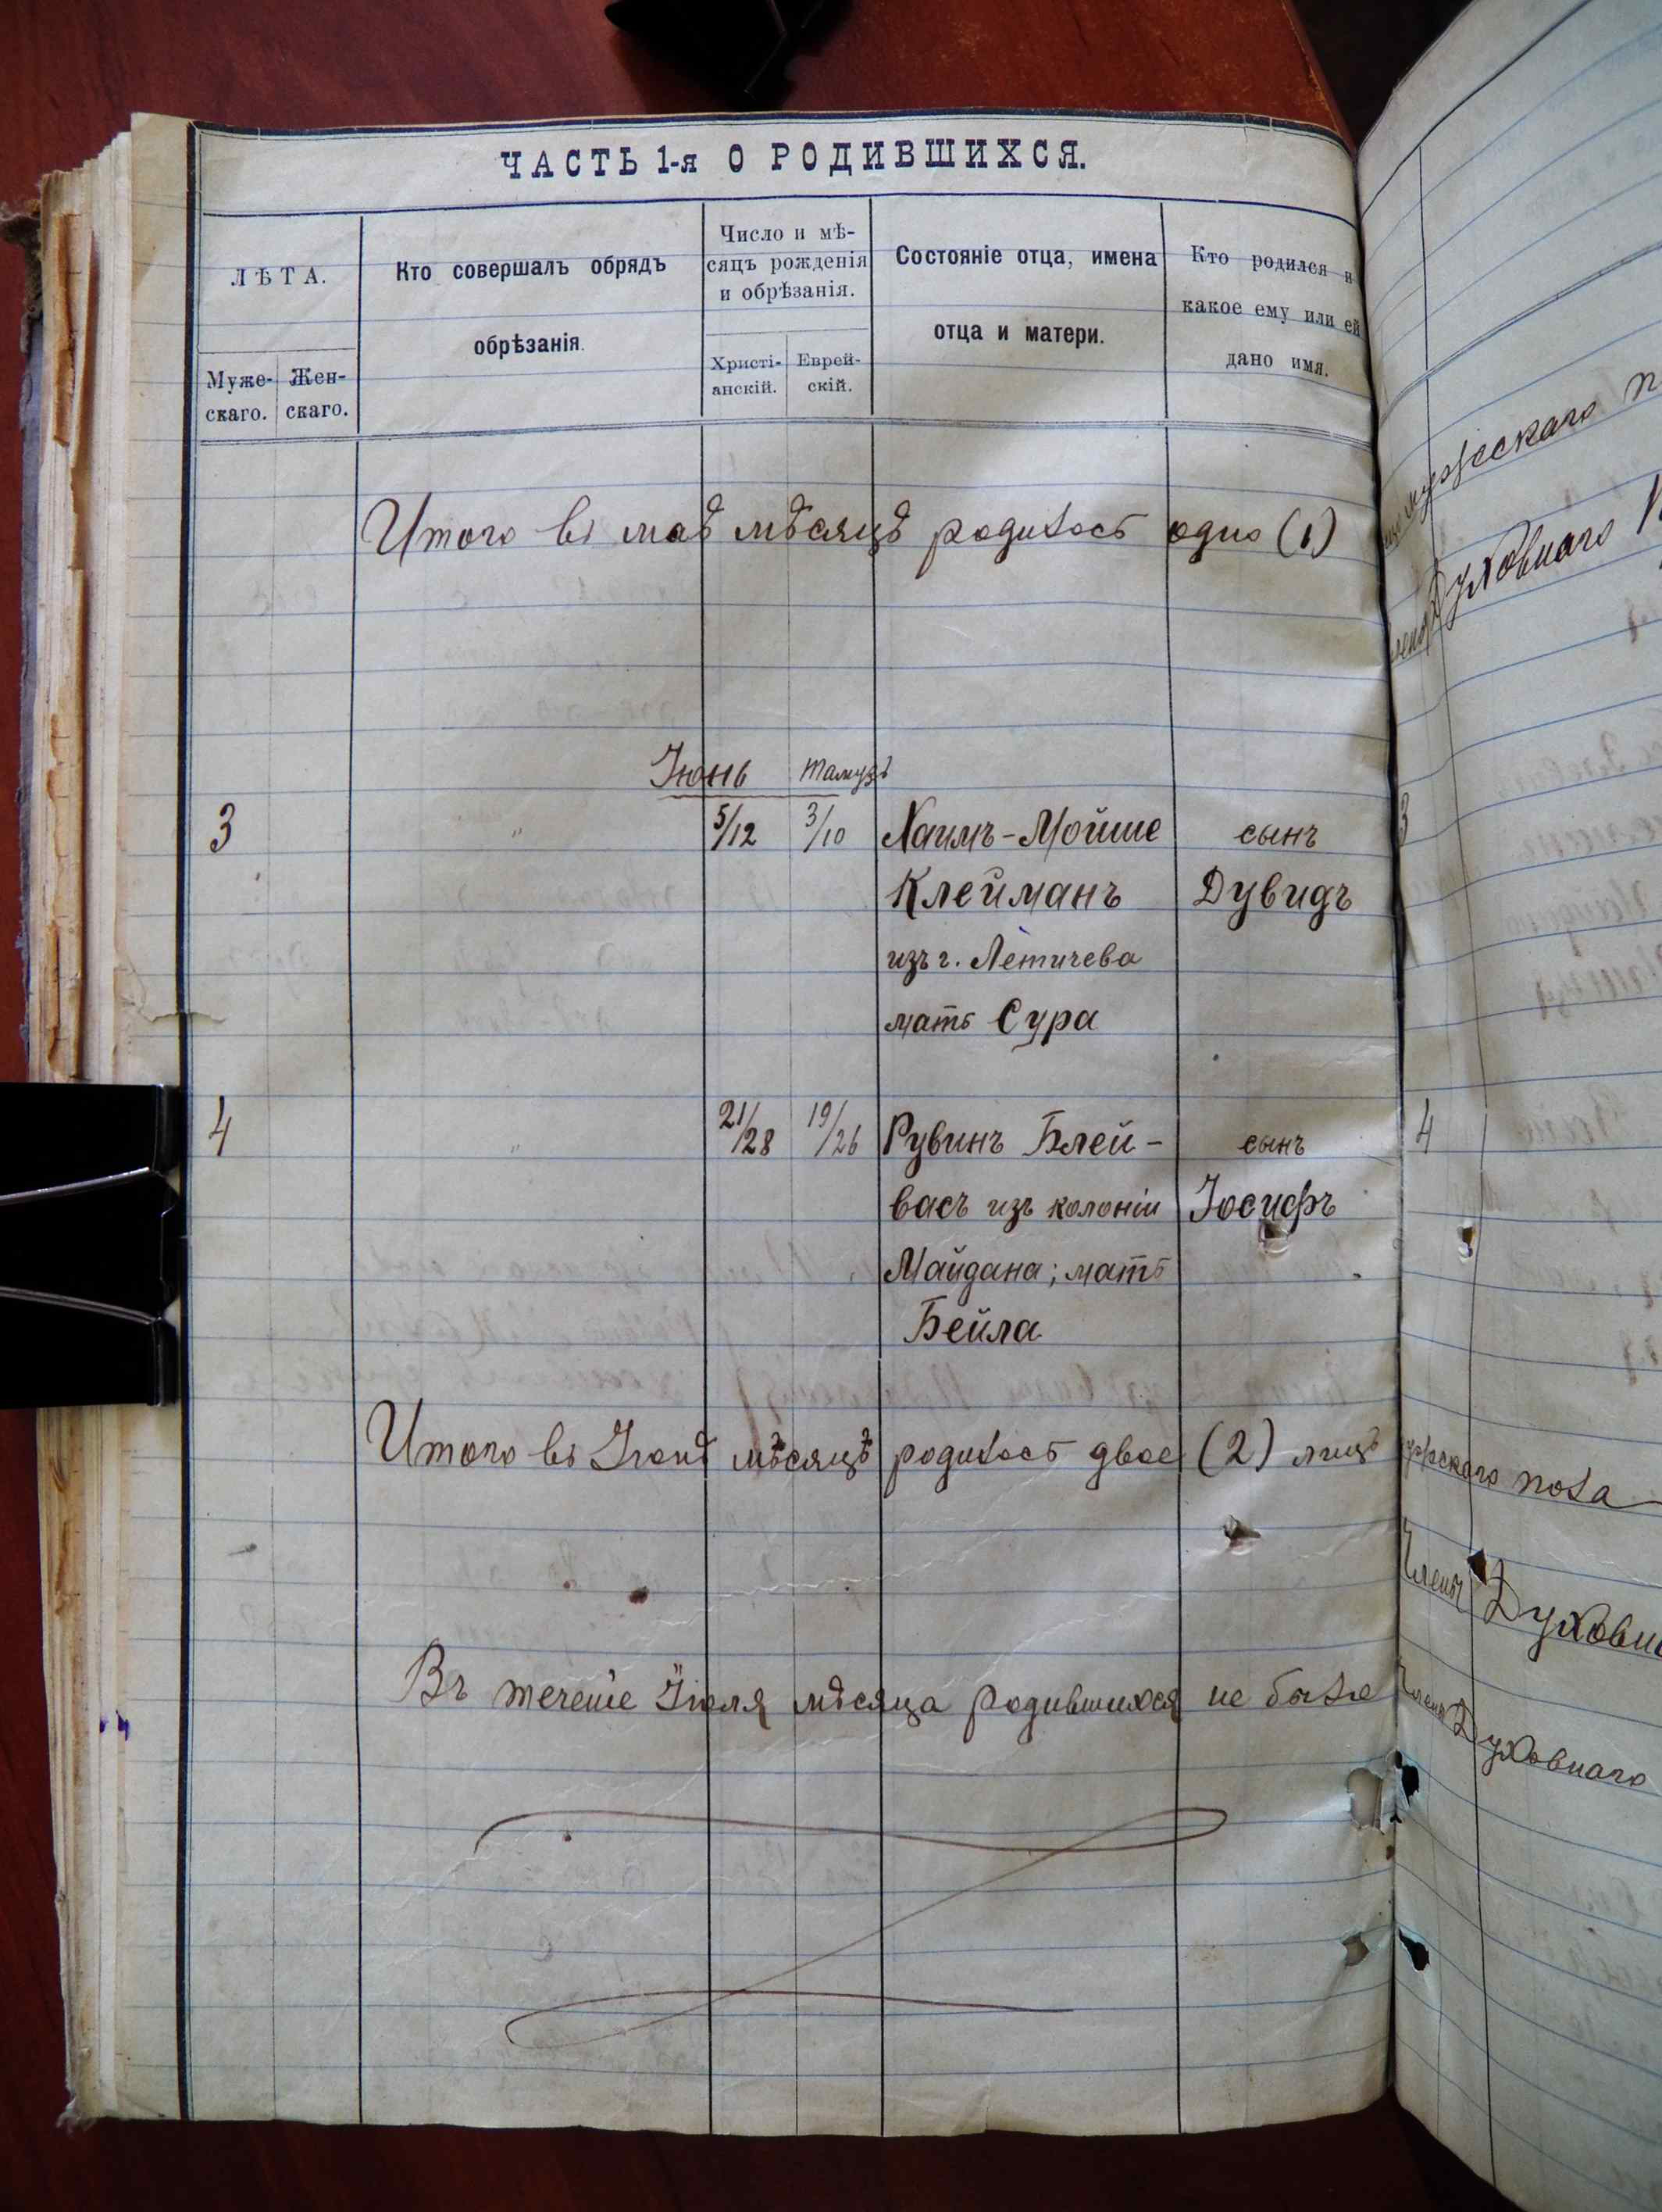 ЧАСТЬ 1-я О РОДИВШИХСЯ.
ЛѢТА.
Муже-
скаго.
Жен-
скаго.
Кто совершалъ обрядъ
обрѣзанія.
Число и мѣ-
сяцъ рожденія
и обрѣзанія.
Христі-
анскій.
Еврей-
скій.
Состояніе отца, имена
отца и матери.
Кто родился и
какое ему или ей
дано имя.
Итого въ маѣ мѣсяцѣ родилось одно (1)
мужескаго
Духовнаго
Іюнь тамузъ
3 " 5/12 3/10 Хаимъ-Мойше сынъ 3
Клейманъ Дувидъ
изъ г. Летичева
мать Сура
4 " 21/28 19/26 Рувинъ Блей- сынъ 4
васъ изъ колоніи Іосифъ
Майдана; мать
Бейла
Итого въ Іюнѣ мѣсяцѣ родилось двое (2) лицъ
пола
Членъ Духовн
Въ теченіе Іюля мѣсяца родившихся не было
Членъ Духовнаго